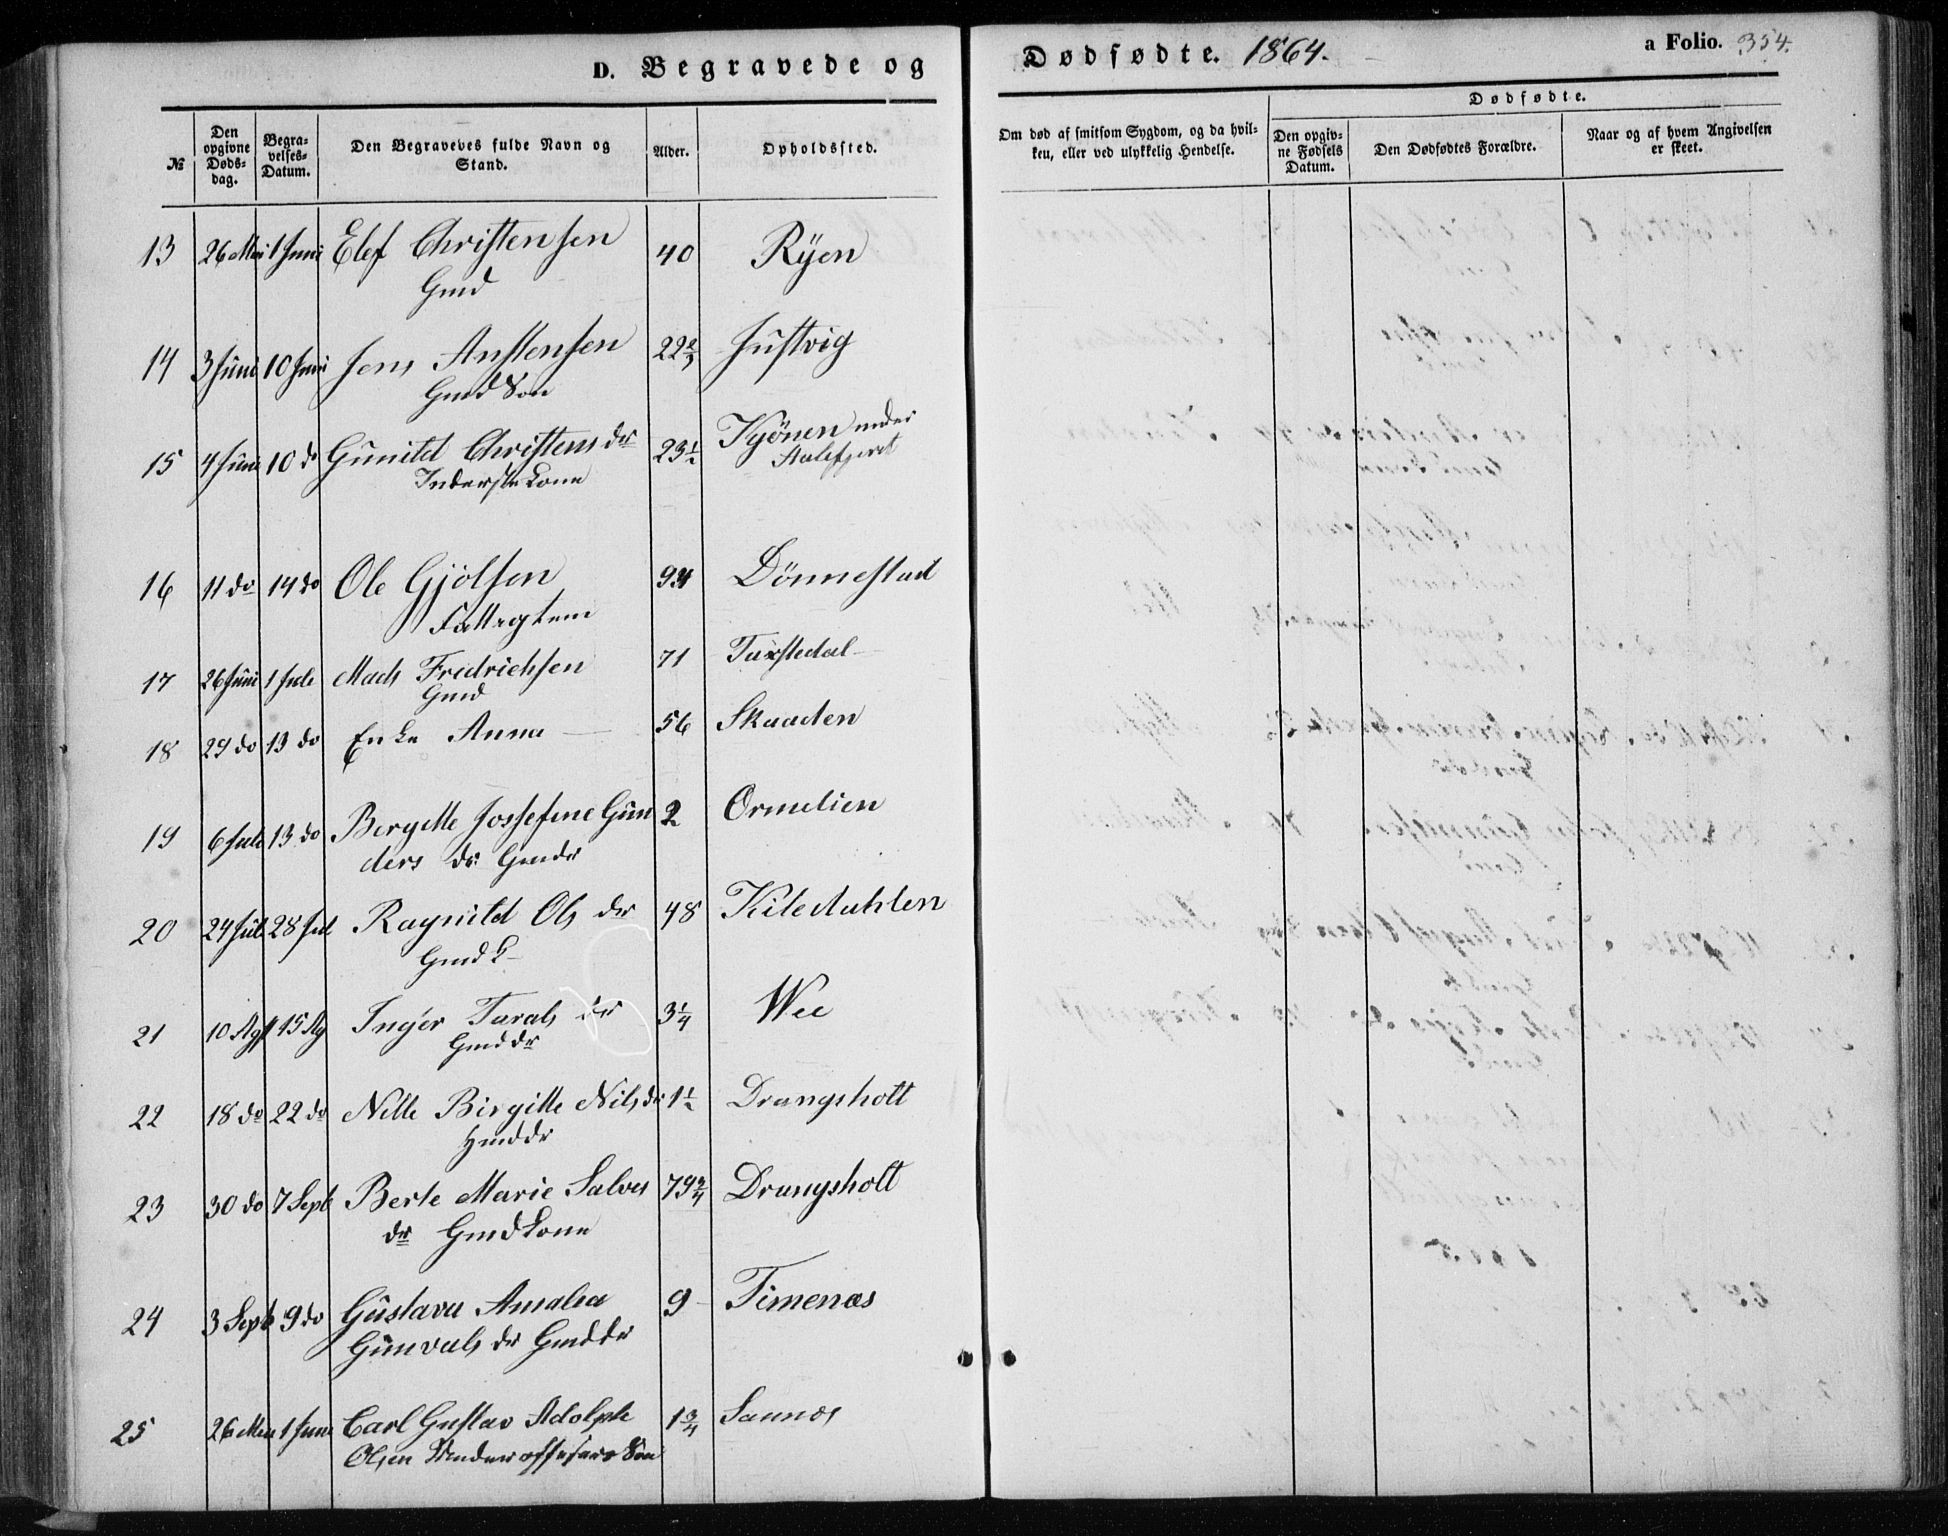 D. Begravede og
Dødfødte. 1864.
a Folio. 354.
№
Den opgivne Døds-dag.
Begra-velses-Datum.
Den Begravedes fulde Navn og Stand.
Alder.
Opholdssted.
Om død af smitsom Sygdom, og da hvil-ken, eller ved ulykkelig Hendelse.
Dødfødte.
Den opgiv-ne Fødsels Datum.
Den Dødfødtes Forældre.
Naar og af hvem Angivelsen er skeet.
13 26 Mai 1 Juni Elef Christensen 40 Ryen
Gmd
14 3 Juni 10 Juni Jens Anstensen 22 2/3 Justvig
Gmd Søn
15 4 Juni 10 do Gunild Christens dr 23 1/2 Kyönen under
Inderste Kone Aalefjæret
16 11 do 14 do Ole Gjölsen 94 Dönnestad
Fattiglem
17 26 Juni 1 Juli Mads Fredrichsen 71 Tuxstedal
Gmd
18 29 do 13 do Enke Anna 56 Skaaden
19 6 Juli 13 do Bergitte Josefine Gun 2 Ormelien
ders dr Gmdr
20 24 Juli 28 Jul Ragnild Ols dr 48 Kiledahlen
Gmd K
21 10 Agst 15 Ag Inger Tarals dr 3 1/4 Wee
Gmd dr
22 18 do 22 do Nille Birgitte Nils dr 1 1/2 Drangsholt
Hmd dr
23 30 do 7 Sept Berte Marie Salves 79 3/4 Drangsholt
dr Gmd Kone
24 3 Sept 9 do Gustava Amalia 9 Timenæs
Gunvals dr Gmd dr
25 26 Mai 1 Juni Carl Gustav Adolph 1 3/4 Sannæs
Olsen Underofficers Søn